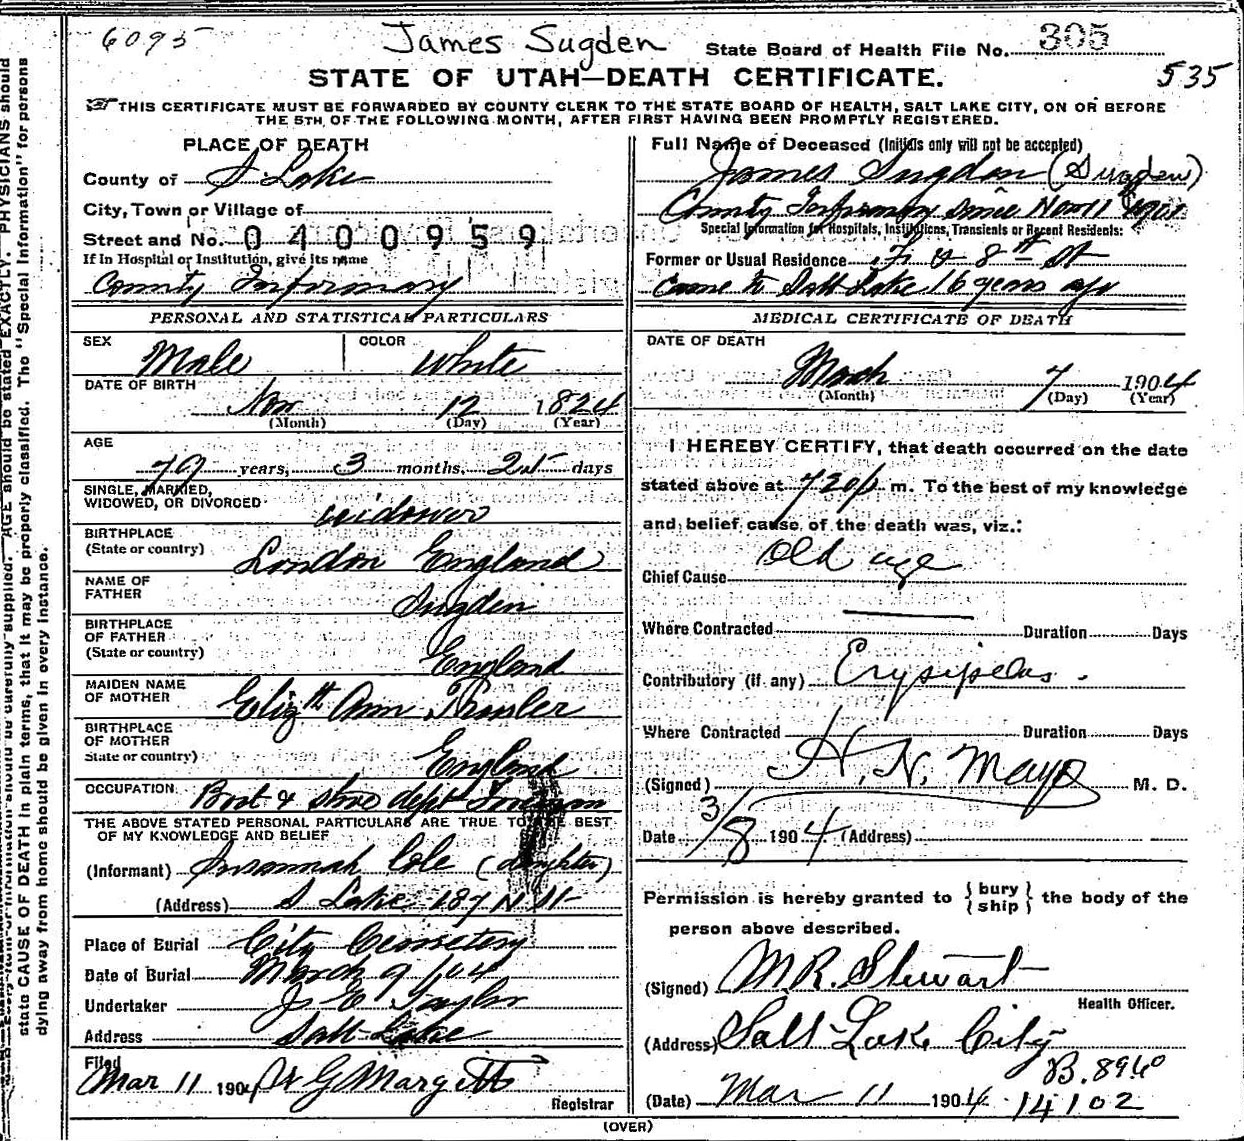 6095 James Sugden State Board of Health File No. 305
STATE OF UTAH—DEATH CERTIFICATE. 535
THIS CERTIFICATE MUST BE FORWARDED BY COUNTY CLERK TO THE STATE BOARD OF HEALTH, SALT LAKE CITY, ON OR BEFORE
THE 5TH OF THE FOLLOWING MONTH, AFTER FIRST HAVING BEEN PROMPTLY REGISTERED.
PLACE OF DEATH
County of S Lake
City, Town or Village of
Street and No. 0400959
If in Hospital or Institution, give its name
County Infirmary
PERSONAL AND STATISTICAL PARTICULARS
SEX Male COLOR White
DATE OF BIRTH
Nov 12 1824
(Month) (Day) (Year)
AGE
79 years, 3 months, 25 days
SINGLE, MARRIED,
WIDOWED, OR DIVORCED widower
BIRTHPLACE
(State or country) London England
NAME OF
FATHER Sugden
BIRTHPLACE
OF FATHER
(State or country) England
MAIDEN NAME
OF MOTHER Elizth Ann
BIRTHPLACE
OF MOTHER
State or country) England
OCCUPATION Boot & shoe dept
THE ABOVE STATED PERSONAL PARTICULARS ARE TRUE TO THE BEST
OF MY KNOWLEDGE AND BELIEF
(Informant) Susannah Cole (daughter)
(Address) S Lake 187 N
Place of Burial City Cemetery
Date of Burial March 9/04
Undertaker J. E. Taylor
Address Salt Lake
Filed
Mar 11 1904 Margetts
Registrar
Full Name of Deceased (Initials only will not be accepted)
James Sugdon (Sugden)
County Infirmary since Nov 11
Special Information for Hospitals, Institutions, Transients or Recent Residents:
Former or Usual Residence F & 8th St
Came to Salt Lake 16 years ago
MEDICAL CERTIFICATE OF DEATH
DATE OF DEATH
March 7 1904
(Month) (Day) (Year)
I HEREBY CERTIFY, that death occurred on the date
stated above at 720 p m. To the best of my knowledge
and belief cause of the death was, viz.:
Chief Cause Old age
Where Contracted — Duration Days
Contributory (if any) Erysipelas.
Where Contracted Duration Days
(Signed) H. N. Mayo M. D.
Date 3/8 1904 (Address)
Permission is hereby granted to {bury ship} the body of the
person above described.
(Signed) M. R. Stewart
Health Officer.
(Address) Salt Lake City
B. 8960
(Date) Mar 11 1904 14102
(OVER)
state CAUSE OF DEATH in plain terms, that it may be properly classified. The "Special Information" for persons
dying away from home should be given in every instance.
AGE should be stated EXACTLY. PHYSICIANS should